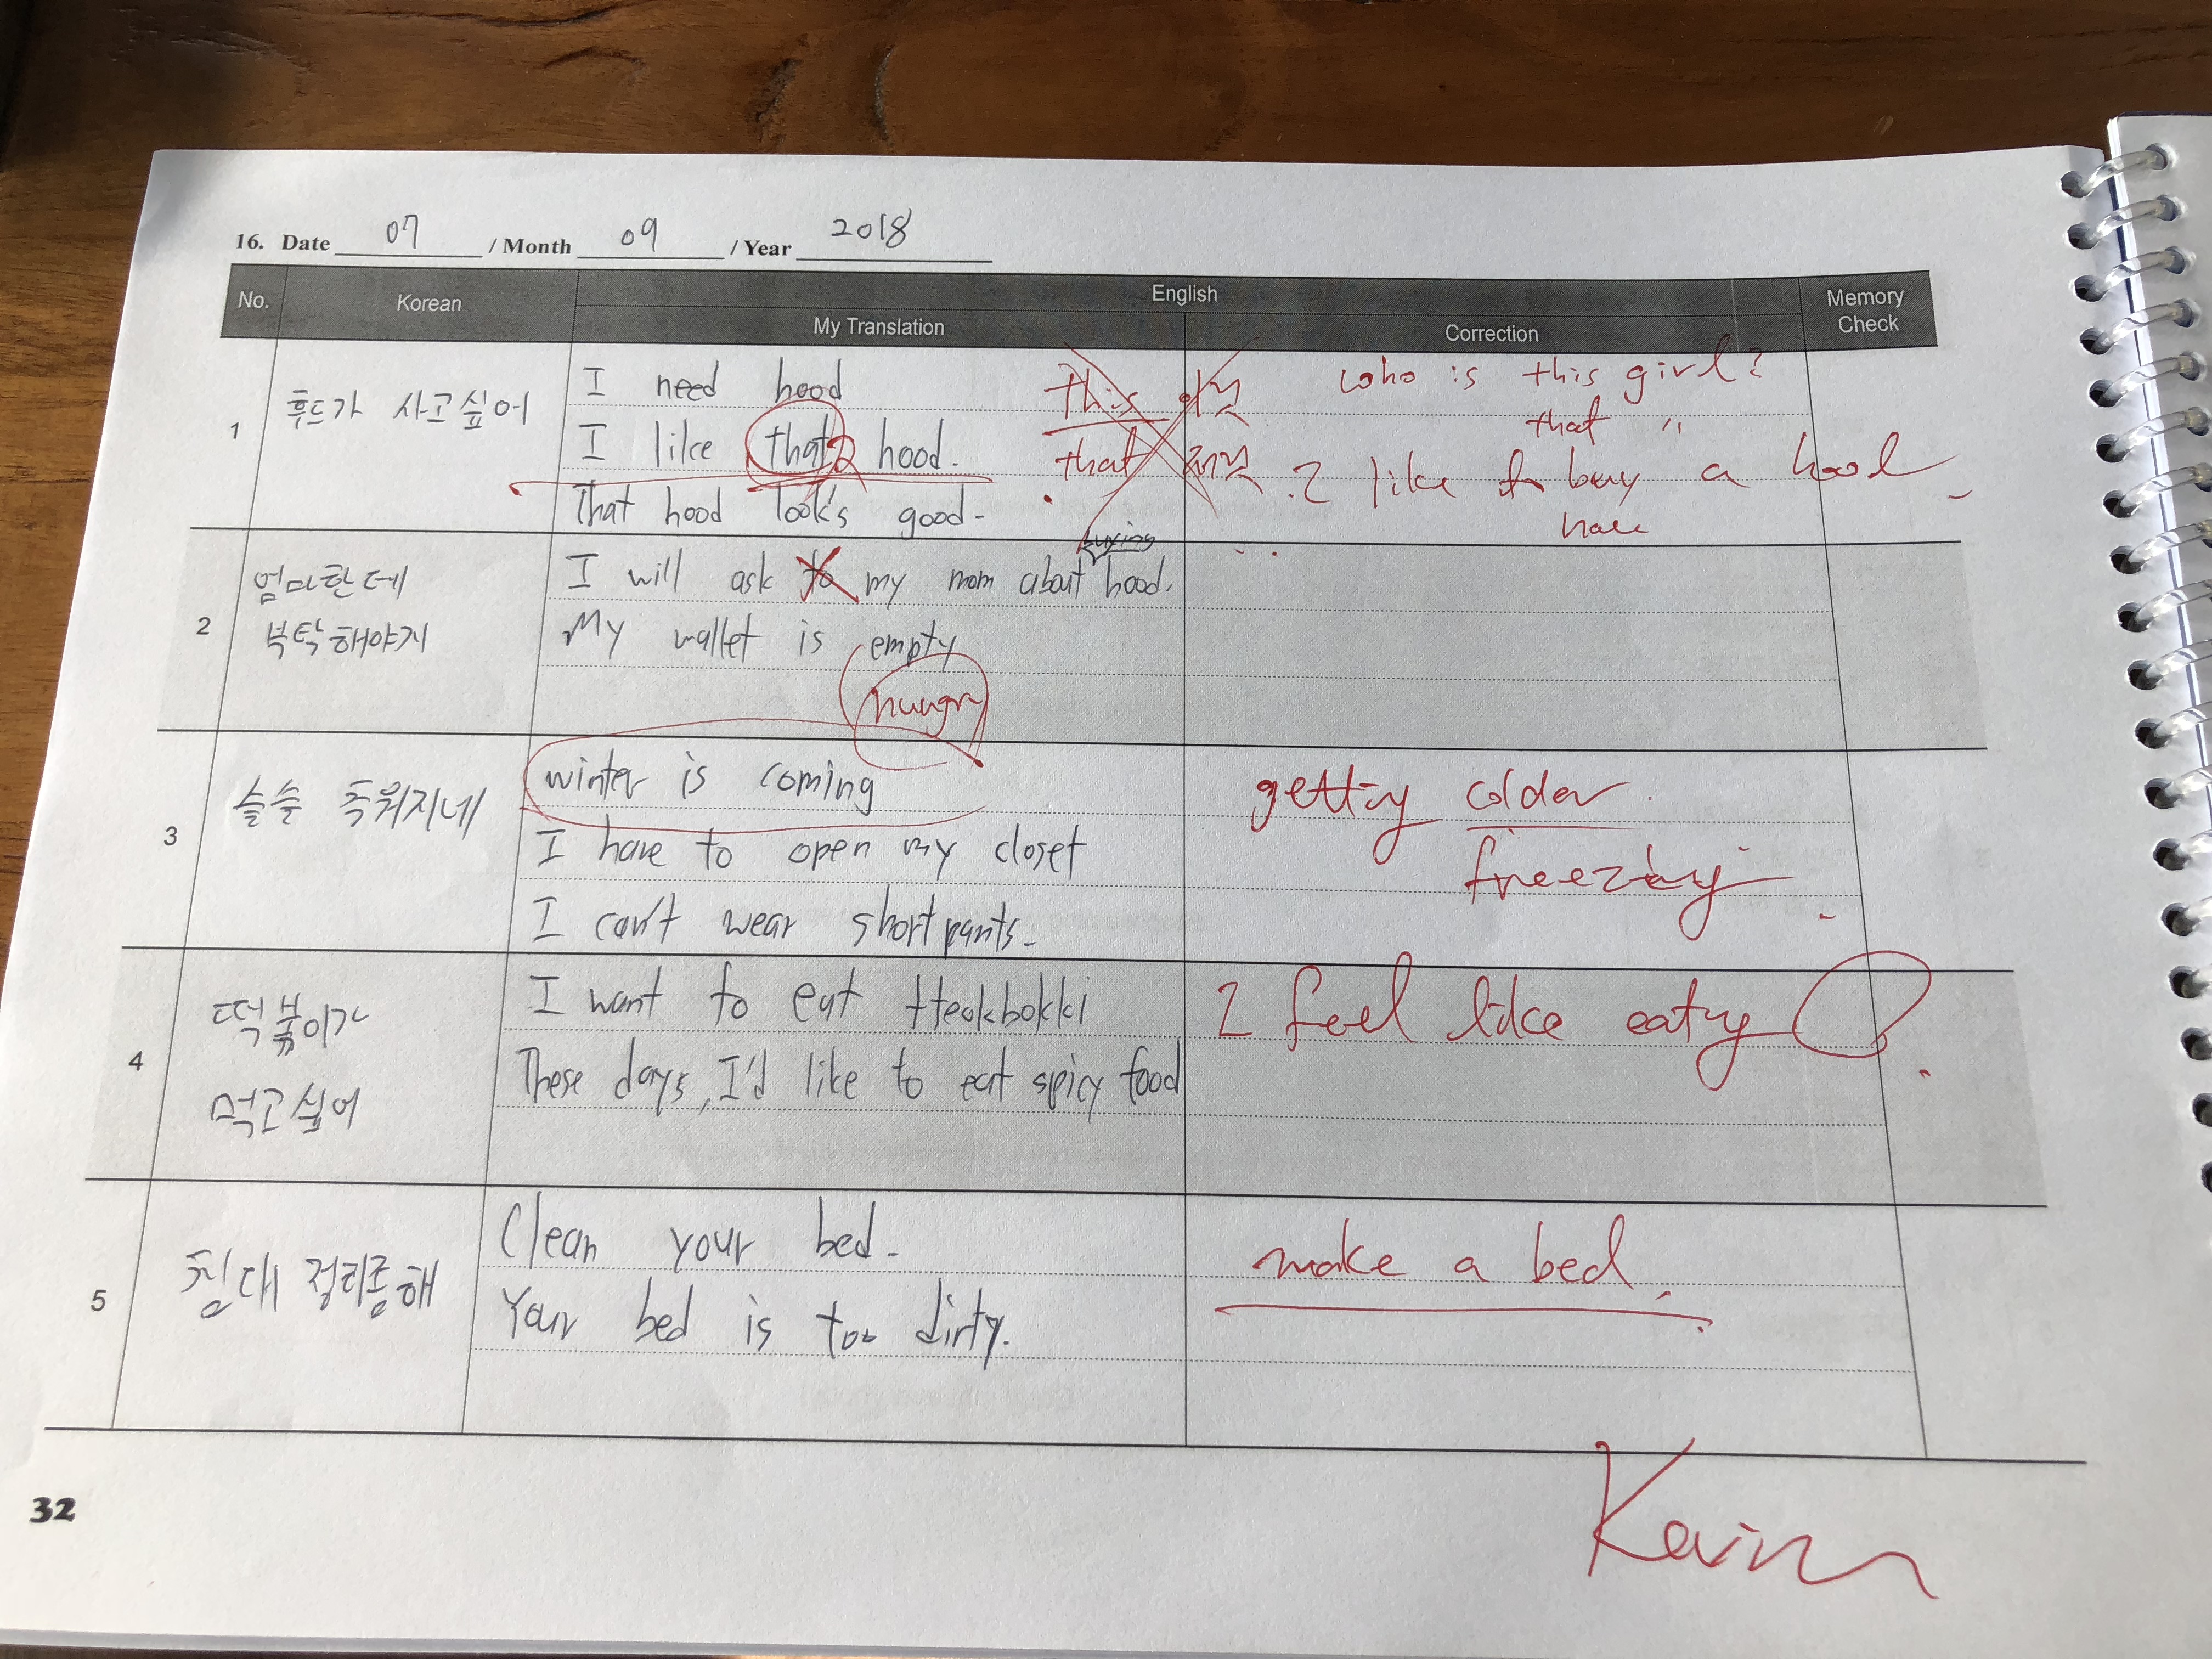 16. Date 07 / Month 09 / Year 2018
No. Korean English Memory Check
My Translation Correction
1 후드가 사고싶어
I need hood
I like that hood.
That hood look's good.
this 이것
that 저것
who is this girl?
that "
I like to buy a hood
have
2 엄마한테
부탁해야지
I will ask to my mom about buying hood.
My wallet is empty
hungry
3 슬슬 추워지네
winter is coming
I have to open my closet
I can't wear short pants.
getting colder.
freezing
4 떡볶이가
먹고싶어
I want to eat tteokbokki
These days, I'd like to eat spicy food
I feel like eating
5 침대 정리좀해
Clean your bed.
Your bed is too dirty.
make a bed.
Kevin
32